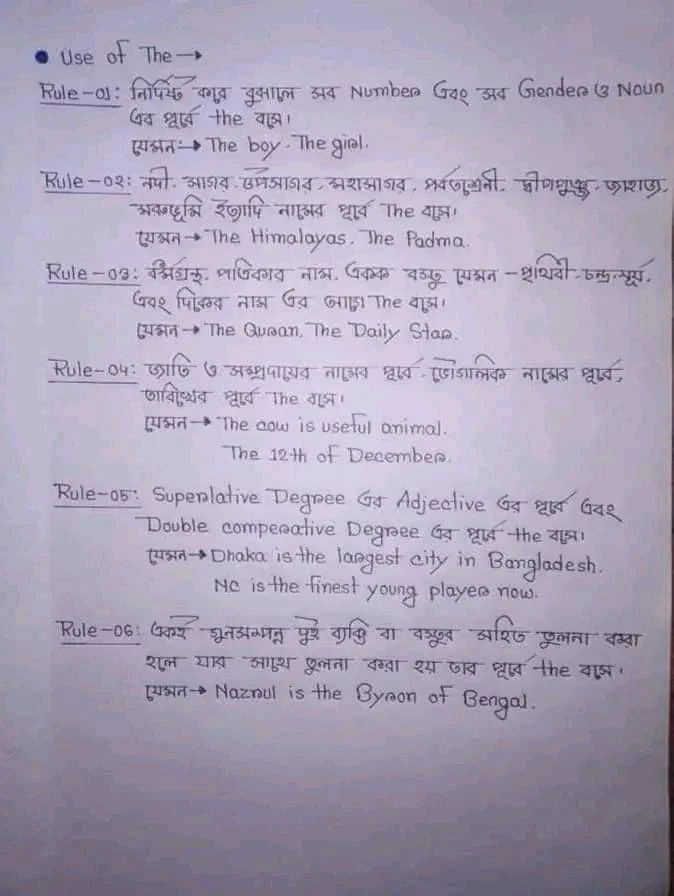 ● Use of The →
Rule-01: নির্দিষ্ট করে বুঝালে সব Number এবং সব Gender ও Noun
এর পূর্বে the বসে।
যেমন:→ The boy. The girl.
Rule-02: নদী. সাগর. উপসাগর. মহাসাগর. পর্বতশ্রেনী. দ্বীপপুঞ্জ. জাহাজ.
মরুভূমি ইত্যাদি নামের পূর্বে The বসে।
যেমন → The Himalayas. The Padma.
Rule-03: ধর্মগ্রন্থ. পত্রিকার নাম. একক বস্তু যেমন - পৃথিবী. চন্দ্র. সূর্য.
এবং দিকের নাম এর আগে The বসে।
যেমন → The Quran. The Daily Star.
Rule-04: জাতি ও সম্প্রদায়ের নামের পূর্বে. ভৌগলিক নামের পূর্বে,
তারিখের পূর্বে The বসে।
যেমন → The cow is useful animal.
The 12th of December.
Rule-05: Superlative Degree এর Adjective এর পূর্বে এবং
Double comperative Degree এর পূর্বে the বসে।
যেমন → Dhaka is the largest city in Bangladesh.
NC is the finest young player now.
Rule-06: একই গুনসম্পন্ন দুই ব্যক্তি বা বস্তুর সহিত তুলনা করা
হলে যার সাথে তুলনা করা হয় তার পূর্বে the বসে।
যেমন → Nazrul is the Byron of Bengal.